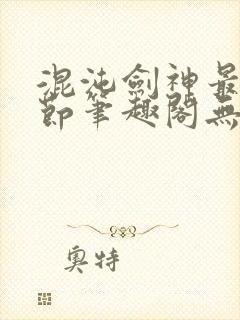 混沌劍神最
節筆趣閣無
奧特